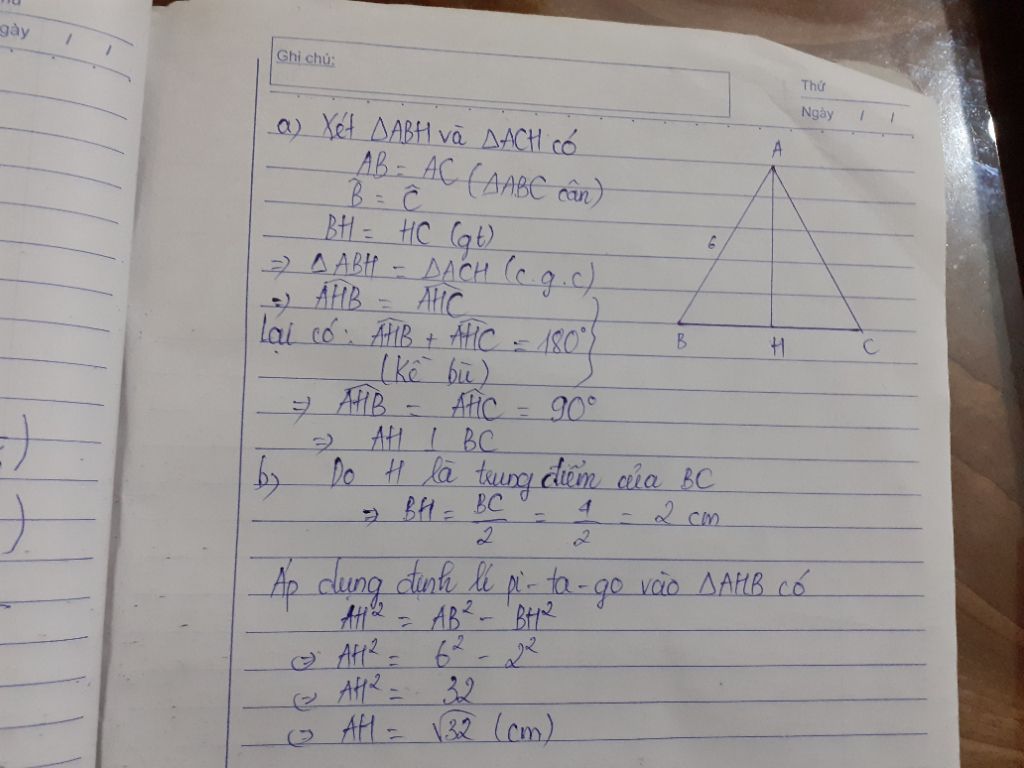 gày / /
Ghi chú:
Thứ
Ngày / /
a) Xét ΔABH và ΔACH có
AB = AC (ΔABC cân)
B̂ = Ĉ
BH = HC (gt)
=> ΔABH = ΔACH (c.g.c)
=> AHB = AHC
Lại có: AHB + AHC = 180°
(Kề bù)
=> AHB = AHC = 90°
=> AH ⊥ BC
A
6
B H C
b) Do H là trung điểm của BC
=> BH = BC/2 = 4/2 = 2 cm
Áp dụng định lí pi-ta-go vào ΔAHB có
AH² = AB² - BH²
<=> AH² = 6² - 2²
<=> AH² = 32
<=> AH = √32 (cm)